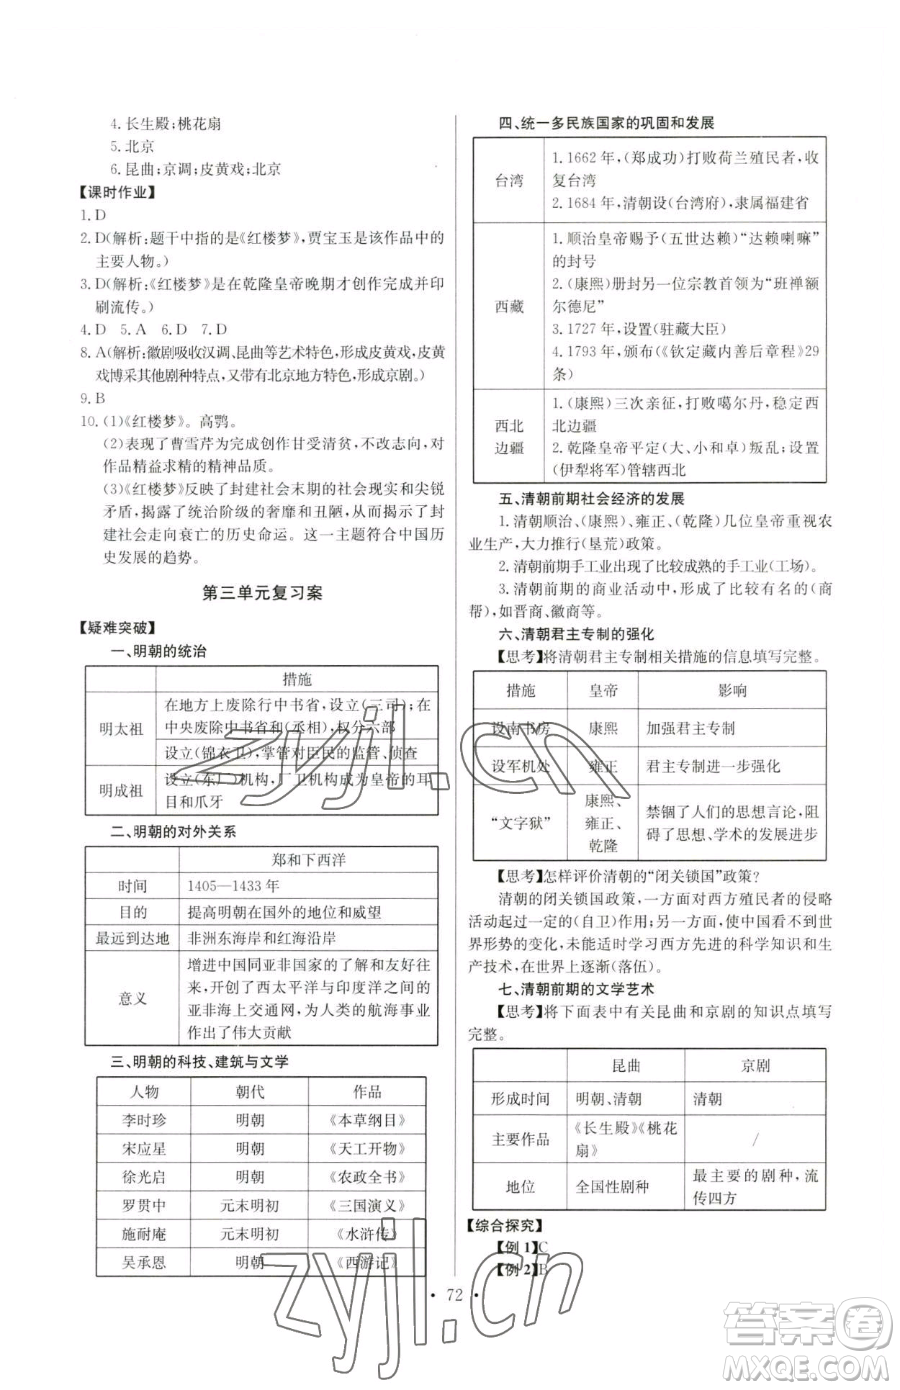 4. 长生殿;桃花扇
5. 北京
6. 昆曲;京调;皮黄戏;北京
【课时作业】
1. D
2. D(解析:题干中指的是《红楼梦》,贾宝玉是该作品中的
主要人物。)
3. D(解析:《红楼梦》是在乾隆皇帝晚期才创作完成并印
刷流传。)
4. D 5. A 6. D 7. D
8. A(解析:徽剧吸收汉调、昆曲等艺术特色,形成皮黄戏,皮黄
戏博采其他剧种特点,又带有北京地方特色,形成京剧。)
9. B
10. (1)《红楼梦》。高鹗。
(2)表现了曹雪芹为完成创作甘受清贫,不改志向,对
作品精益求精的精神品质。
(3)《红楼梦》反映了封建社会末期的社会现实和尖锐
矛盾,揭露了统治阶级的奢靡和丑陋,体现了封
建社会走向衰亡的历史命运。这一主题符合中国历
史发展的趋势。
第三单元复习案
【疑难突破】
一、明朝的统治
措施
明太祖
在地方上废除行中书省,设立(三司);在
中央废除中书省和(丞相),权分六部
设立(锦衣卫),掌管对臣民的监管、侦查
明成祖
设立(东厂)机构,厂卫机构成为皇帝的耳
目和爪牙
二、明朝的对外关系
郑和下西洋
时间 1405—1433 年
目的 提高明朝在国外的地位和威望
最远到达地 非洲东海岸和红海沿岸
意义
增进中国同亚非国家的了解和友好往
来,开创了西太平洋与印度洋之间的
亚非海上交通网,为人类的航海事业
作出了伟大贡献
三、明朝的科技、建筑与文学
人物 朝代 作品
李时珍 明朝 《本草纲目》
宋应星 明朝 《天工开物》
徐光启 明朝 《农政全书》
罗贯中 元末明初 《三国演义》
施耐庵 元末明初 《水浒传》
吴承恩 明朝 《西游记》
四、统一多民族国家的巩固和发展
台湾
1. 1662 年,(郑成功)打败荷兰殖民者,收
复台湾
2. 1684 年,清朝设(台湾府),隶属福建省
西藏
1. 顺治皇帝赐予(五世达赖)“达赖喇嘛”
的封号
2. (康熙)册封另一位宗教首领为“班禅额
尔德尼”
3. 1727 年,设置(驻藏大臣)
4. 1793 年,颁布《钦定藏内善后章程》29
条
西北
边疆
1. (康熙)三次亲征,打败噶尔丹,稳定西
北边疆
2. 乾隆皇帝平定(大、小和卓)叛乱;设置
(伊犁将军)管辖西北
五、清朝前期社会经济的发展
1. 清朝顺治、(康熙)、雍正、(乾隆)几位皇帝重视农
业生产,大力推行(垦荒)政策。
2. 清朝前期手工业出现了比较成熟的手工业(工场)。
3. 清朝前期的商业活动中,形成了许多大型的(商
帮),如晋商、徽商等。
六、清朝君主专制的强化
【思考】将清朝君主专制相关措施的信息填写完整。
措施 皇帝 影响
设南书房 康熙 加强君主专制
设军机处 雍正 君主专制进一步强化
“文字狱”
康熙、
雍正、
乾隆
禁锢了人们的思想言论,阻
碍了思想、学术的发展进步
【思考】怎样评价清朝的“闭关锁国”政策?
清朝的闭关锁国政策,一方面对西方殖民者的侵略
活动起过一定的(自卫)作用;另一方面,使中国看不到世
界形势的变化,未能适时学习西方先进的科学知识和生
产技术,在世界上逐渐(落伍)。
七、清朝前期的文学艺术
【思考】将下面表中有关昆曲和京剧的知识点填写
完整。
昆曲 京剧
形成时间 明朝、清朝 清朝
主要作品
《长生殿》《桃花
扇》
/
地位 全国性剧种
最主要的剧种,流
传四方
【综合探究】
【例 1】C
【例 2】B
· 72 ·
zyjl.cn
zyjl.cn
答案圈
MXQE.COM